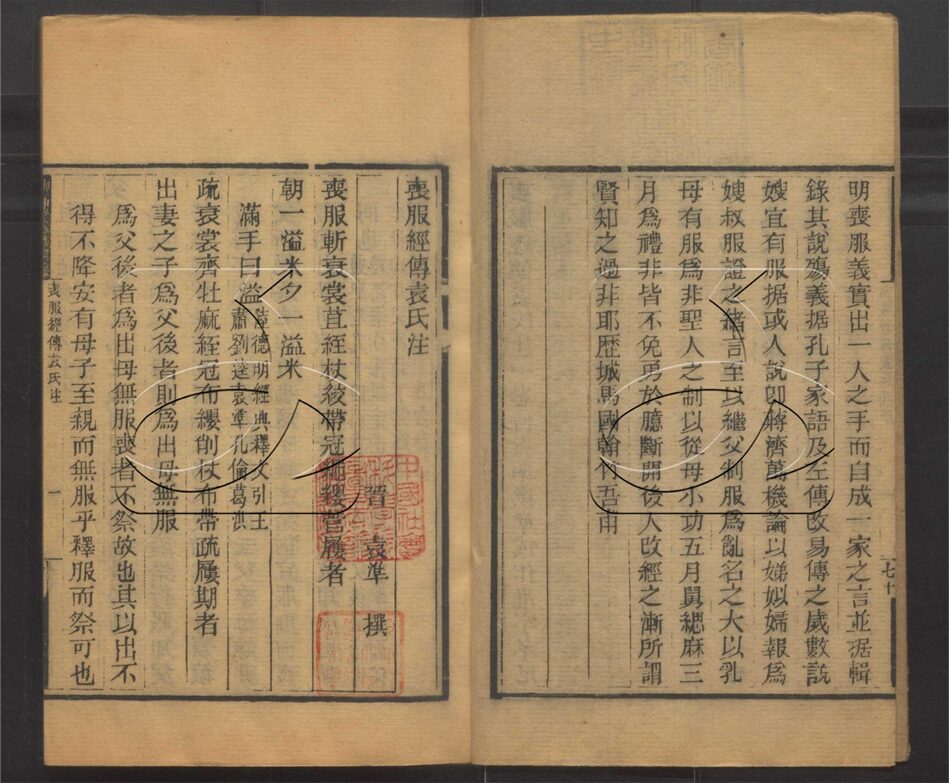 明喪服義實出一人之手而自成一家之言並据輯
錄其說殤義据孔子家語及左傳改易傳之歲數說
嫂宜有服据或人說卽蔣濟萬機論以娣姒婦報為
嫂叔服證之緒言至以繼父制服為亂名之大以乳
母有服為非聖人之制以從母小功五月舅緦麻三
月為禮非皆不免勇於臆斷開後人改經之漸所謂
賢知之過非耶歴城馬國翰竹吾甫
七十
喪服經傳袁氏注
晉 袁準 撰
喪服斬衰裳苴絰杖絞帶冠繩纓菅屨者
朝一溢米夕一溢米
滿手曰溢陸德明經典釋文引王
肅劉逵袁準孔倫葛洪
疏衰裳齊牡麻絰冠布纓削杖布帶疏屨期者
出妻之子為父後者則為出母無服
為父後者為出母無服喪者不祭故也其以出不
得不降安有母子至親而無服乎釋服而祭可也
喪服經傳袁氏注
一